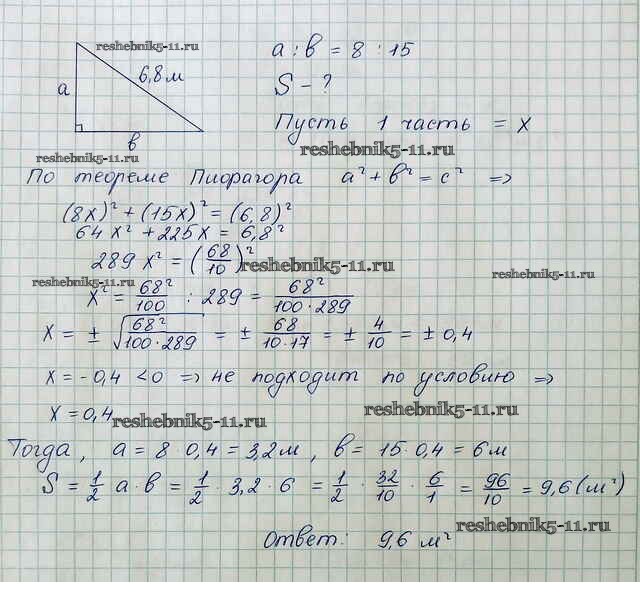 reshebnik5-11.ru
a : b = 8 : 15
6,8 м
a
S - ?
b
Пусть 1 часть = x
reshebnik5-11.ru
reshebnik5-11.ru
По теореме Пифагора a² + b² = c² ⇒
(8x)² + (15x)² = (6,8)²
64x² + 225x = 6,8²
289 x² = (68/10)²
reshebnik5-11.ru
reshebnik5-11.ru
reshebnik5-11.ru
x² = 68²/100 : 289 = 68²/(100·289)
x = ± √(68²/(100·289)) = ± 68/(10·17) = ± 4/10 = ± 0,4
x = -0,4 < 0 ⇒ не подходит по условию ⇒
x = 0,4
reshebnik5-11.ru
reshebnik5-11.ru
Тогда, a = 8 · 0,4 = 3,2 м, b = 15 · 0,4 = 6 м
S = 1/2 a · b = 1/2 · 3,2 · 6 = 1/2 · 32/10 · 6/1 = 96/10 = 9,6 (м²)
reshebnik5-11.ru
Ответ: 9,6 м²